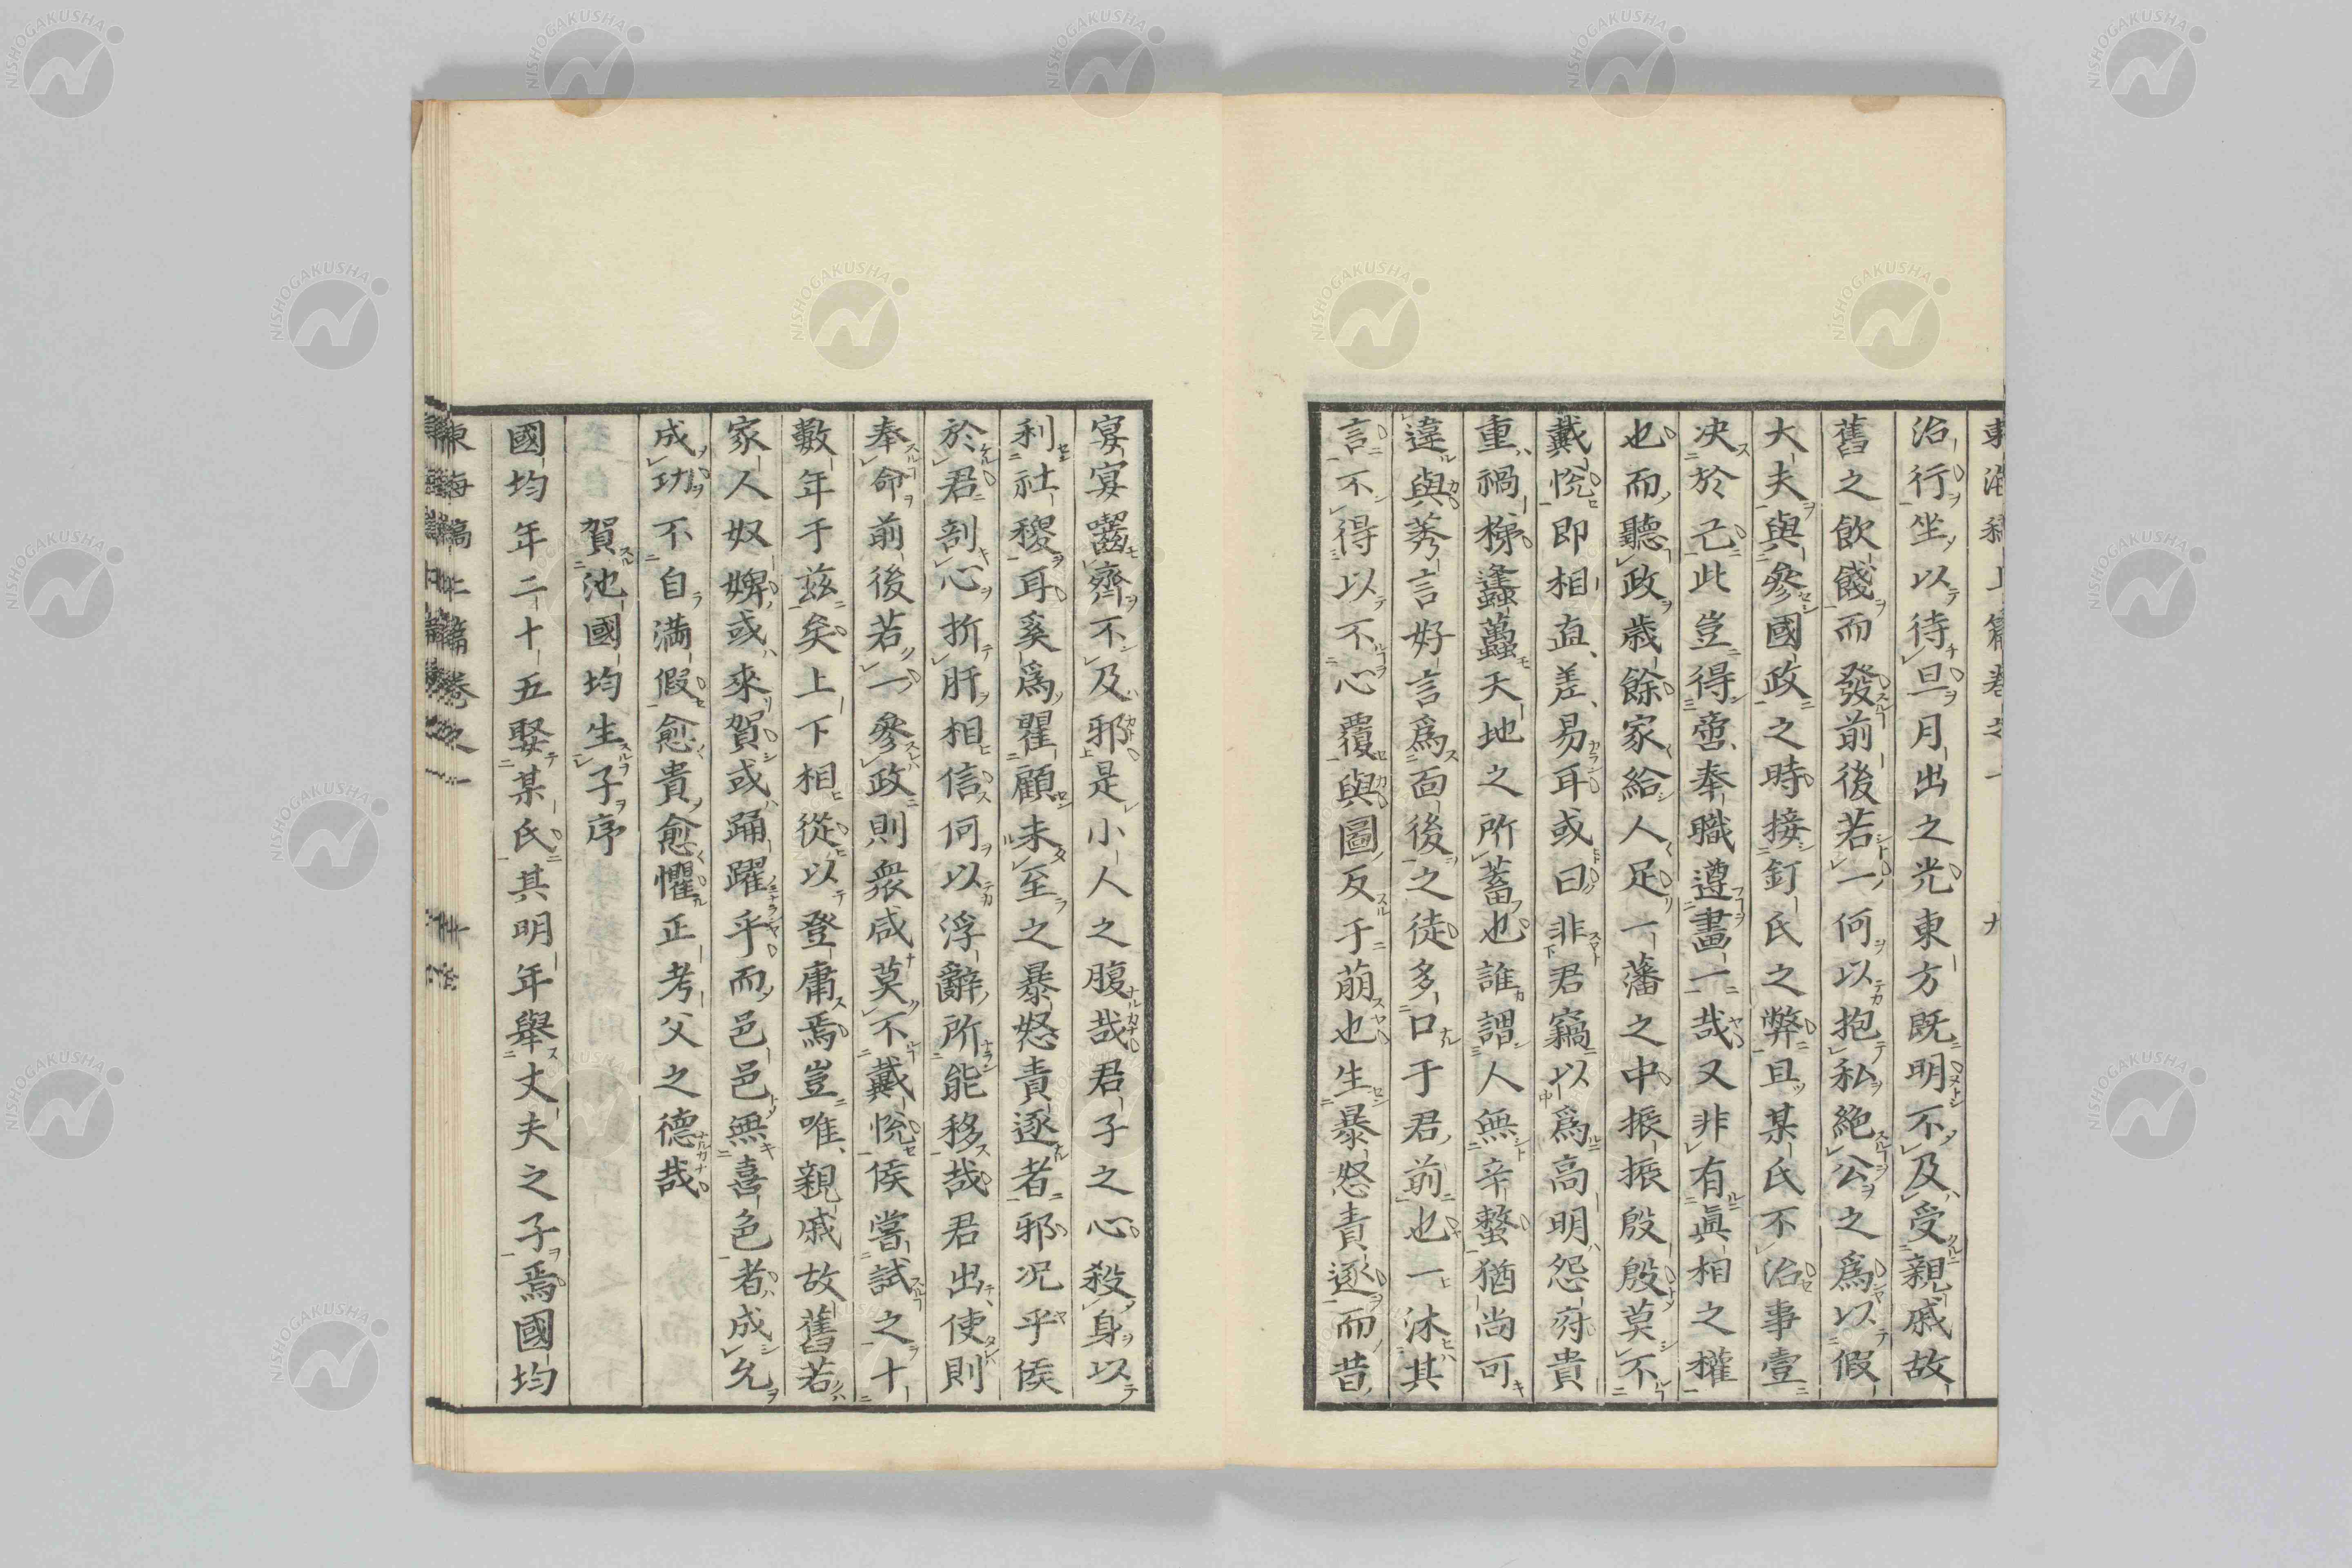 東海稿上篇卷之一 九
治行坐以待旦月出之光東方既明不及受親戚故
舊之飲餞而發前後若一何以抱私絶公之爲以假
大夫與參國政之時接釘氏之弊且某氏不治事壹
决於己此豈得啻奉職遵畫一哉又非有眞相之權
也而聽政歳餘家給人足一藩之中振振殷殷莫不
戴悦即相直差易耳或曰非君竊以爲高明怨府貴
重禍梯蓬蠆天地之所蓄也誰謂人無辛螫猶尚可
違與莠言好言爲面後之徒多口于君前也一沐其
言不得以不心覆與圖反于萠也生暴怒責逐而昔
宴宴囓齊不及邪是小人之腹哉君子之心殺身以
利社稷耳奚爲瞿顧未至之暴怒責逐者邪况乎侯
於君剖心折肝相信何以浮辭所能移哉君出使則
奉命前後若一參政則衆咸莫不戴悦侯嘗試之十
數年于茲矣上下相從以登庸焉豈唯親戚故舊若
家人奴婢或來賀或踊躍乎而邑邑無喜色者成允
成功不自満假愈貴愈懼正考父之德哉
賀池國均生子序
國均年二十五娶某氏其明年舉丈夫之子焉國均
東海稿上篇卷之一